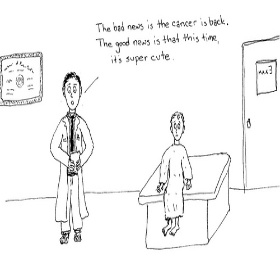 The bad news is the cancer is back.
The good news is that this time,
it's super cute.